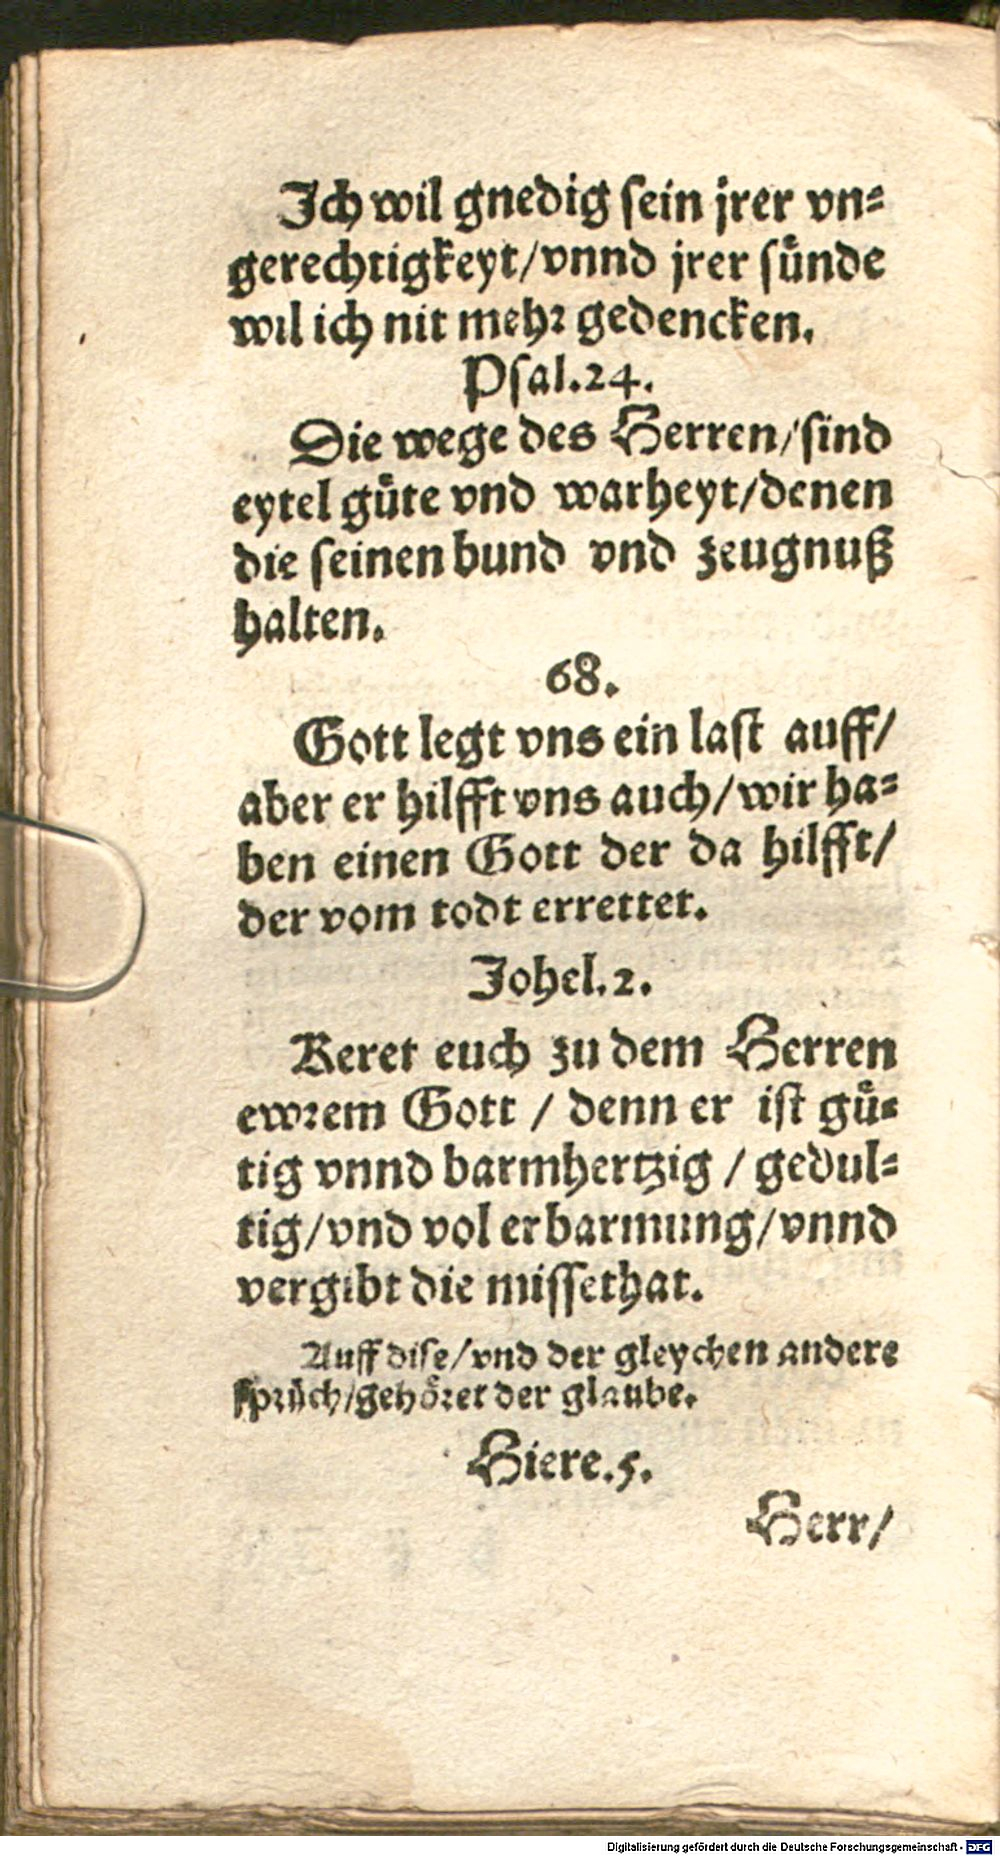 Ich wil gnedig sein jrer vn⸗
gerechtigkeyt/vnnd jrer suͤnde
wil ich nit mehr gedencken.
Psal.24.
Die wege des Herren/sind
eytel guͤte vnd warheyt/denen
die seinen bund vnd zeugnuß
halten.
68.
Gott legt vns ein last auff/
aber er hilfft vns auch/wir ha⸗
ben einen Gott der da hilfft/
der vom todt errettet.
Johel.2.
Keret euch zu dem Herren
ewrem Gott / denn er ist guͤ⸗
tig vnnd barmhertzig / gedul⸗
tig/vnd vol erbarmung/vnnd
vergibt die missethat.
Auff dise/vnd der gleychen andere
spruͤch/gehoͤret der glaube.
Hiere.5.
Herr/
Digitalisierung gefördert durch die Deutsche Forschungsgemeinschaft - DFG